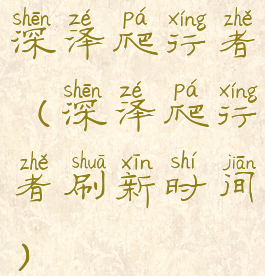 shēn zé pá xíng zhě
深泽爬行者
shēn zé pá xíng
(深泽爬行
zhě shuā xīn shí jiān
者刷新时间
)